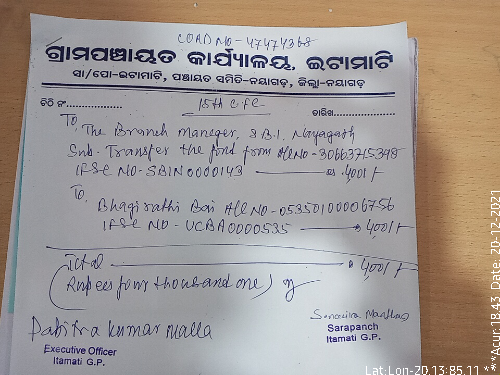 CORD NO - 47474368
ଗ୍ରାମପଞ୍ଚାୟତ କାର୍ଯ୍ୟାଳୟ, ଇଟାମାଟି
ସା/ପୋ-ଇଟାମାଟି, ପଞ୍ଚାୟତ ସମିତି-ନୟାଗଡ଼, ଜିଲ୍ଲା-ନୟାଗଡ଼
ଚିଠି ନଂ.................. 15th C.F.C. ତାରିଖ..................
To, The Branch Manager, S.B.I, Nayagarh
Sub- Transfer the fond from A/c No - 30663715398
IFSC NO - SBIN0000143 4001/-
To,
Bhagirathi Bai A/c NO - 05350100006756
IFSC NO - UCBA0000535 4001/-
Total 4001/-
(Rupees four thousand one)
Pabitra Kumar Malla
Executive Officer Sarapanch
Itamati G.P. Itamati G.P.
Lat:Lon-20.13:85.11 ***Acur:18.43 Date: 20-12-2021 ***